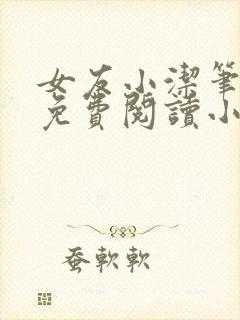 女友小潔筆
免費閱讀小
蚕軟軟